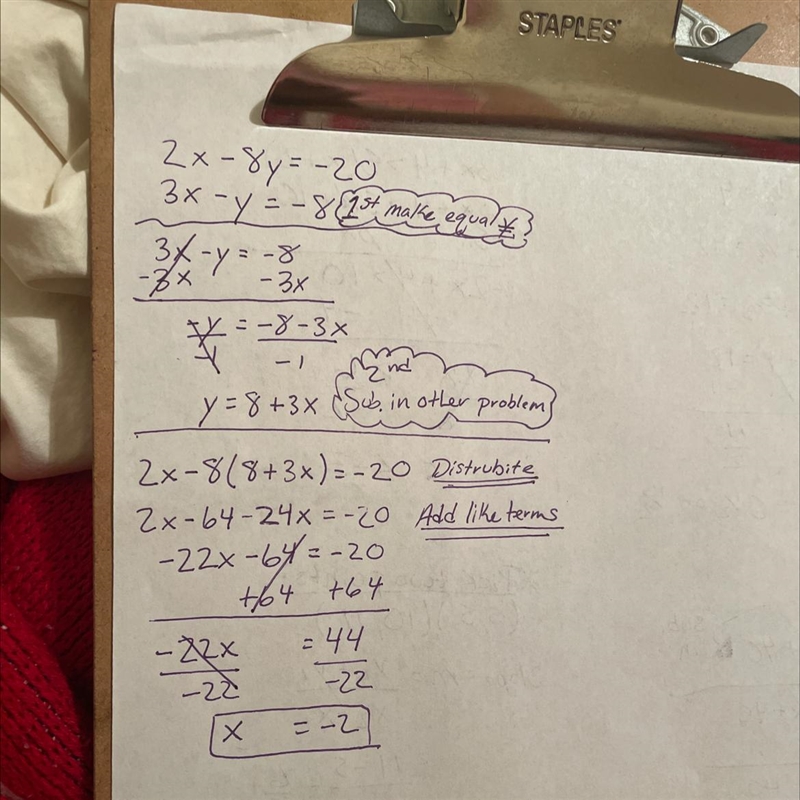 STAPLES®
2x - 8y = -20
3x - y = -8 1st make equal y
3x - y = -8
-3x -3x
-y = -8 - 3x
-1 -1
2nd
y = 8 + 3x Sub. in other problem
2x - 8(8 + 3x) = -20 Distrubite
2x - 64 - 24x = -20 Add like terms
-22x - 64 = -20
+64 +64
-22x = 44
-22 -22
x = -2